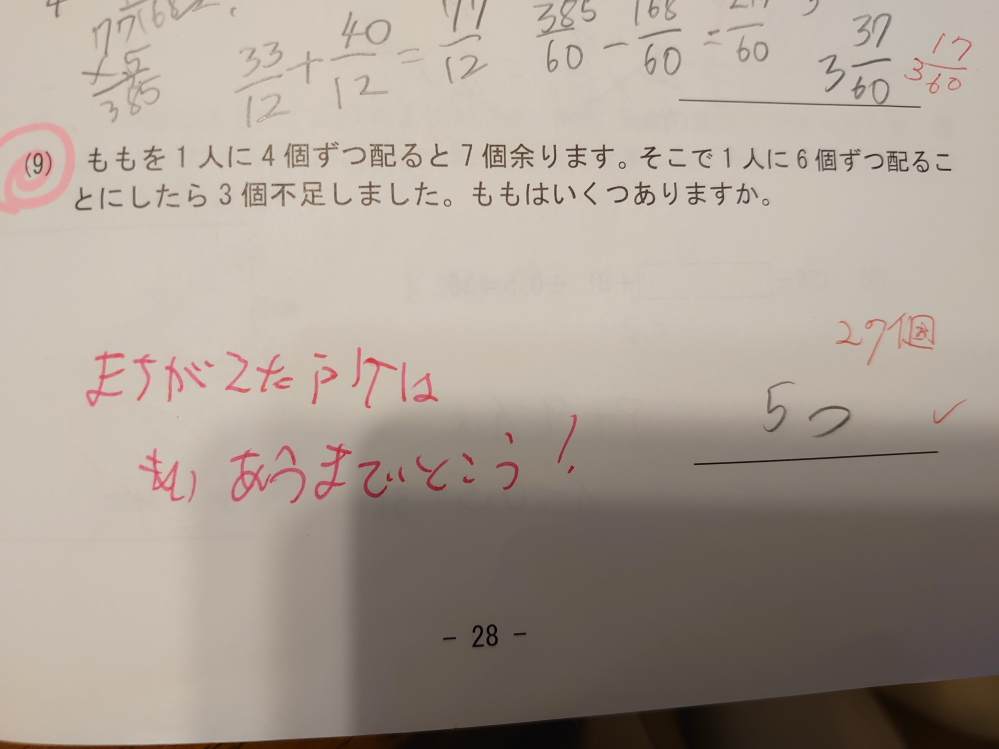 77 168
× 5
385
33/12 + 40/12 = 77/12
385/60 - 168/60 = 217/60
3 37/60
3 17/60
(9) ももを1人に4個ずつ配ると7個余ります。そこで1人に6個ずつ配るこ
とにしたら3個不足しました。ももはいくつありますか。
27個
5つ
まちがえた所は
もいあうまでいとこう!
- 28 -